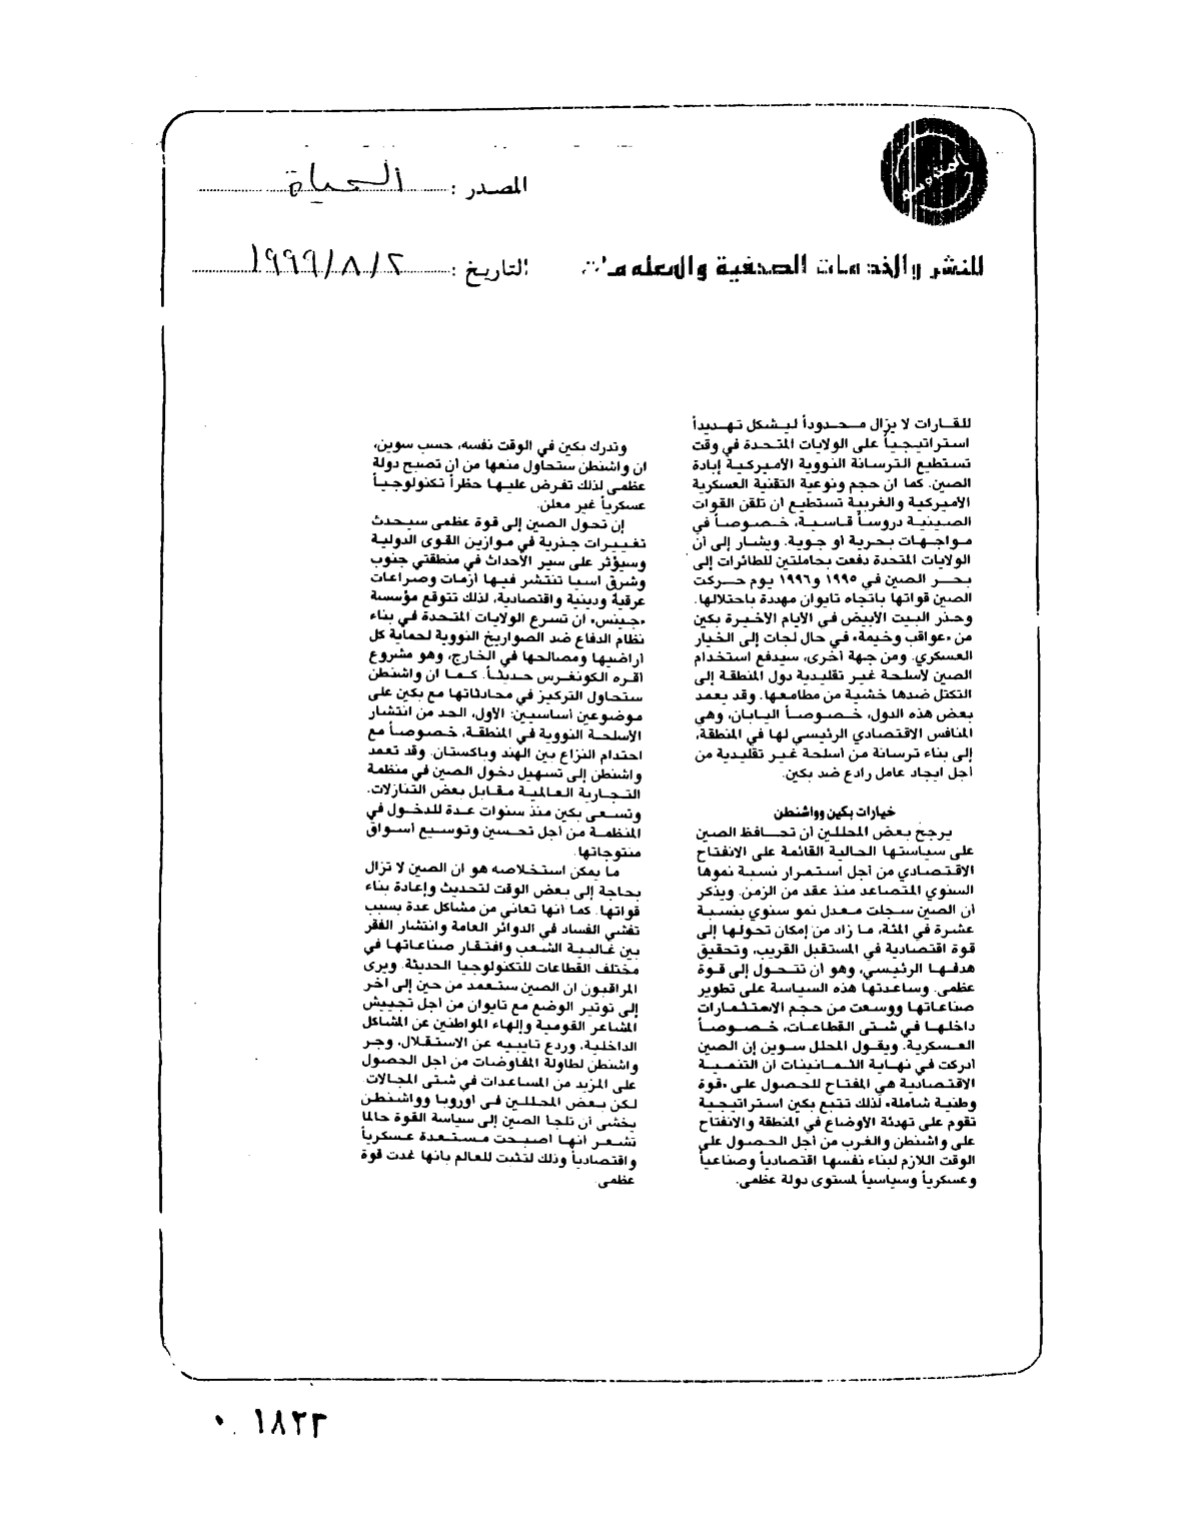 المصدر : الحياة
للنشر والخدمات الصحفية والمعلومات
التاريخ : ١٩٩٩/٨/٢
للقارات لا يزال محدوداً ليشكل تهديداً
استراتيجياً على الولايات المتحدة في وقت
تستطيع الترسانة النووية الأميركية إبادة
الصين. كما ان حجم ونوعية التقنية العسكرية
الأميركية والغربية تستطيع ان تلقن القوات
الصينية دروساً قاسية، خصوصاً في
مواجهات بحرية أو جوية. ويشار إلى أن
الولايات المتحدة دفعت بحاملتين للطائرات إلى
بحر الصين في ١٩٩٥ و١٩٩٦ يوم حركت
الصين قواتها باتجاه تايوان مهددة باحتلالها.
وحذر البيت الأبيض في الأيام الأخيرة بكين
من «عواقب وخيمة» في حال لجأت إلى الخيار
العسكري. ومن جهة أخرى، سيدفع استخدام
الصين لأسلحة غير تقليدية دول المنطقة إلى
التكتل ضدها خشية من مطامعها. وقد يعمد
بعض هذه الدول، خصوصاً اليابان، وهي
المنافس الاقتصادي الرئيسي لها في المنطقة،
إلى بناء ترسانة من أسلحة غير تقليدية من
أجل ايجاد عامل رادع ضد بكين.
خيارات بكين وواشنطن
يرجح بعض المحللين أن تحافظ الصين
على سياستها الحالية القائمة على الانفتاح
الاقتصادي من أجل استمرار نسبة نموها
السنوي المتصاعد منذ عقد من الزمن. ويذكر
أن الصين سجلت معدل نمو سنوي بنسبة
عشرة في المئة، ما زاد من إمكان تحولها إلى
قوة اقتصادية في المستقبل القريب، وتحقيق
هدفها الرئيسي، وهو أن تتحول إلى قوة
عظمى. وساعدتها هذه السياسة على تطوير
صناعاتها ووسعت من حجم الاستثمارات
داخلها في شتى القطاعات، خصوصاً
العسكرية. ويقول المحلل سوين إن الصين
أدركت في نهاية الثمانينات أن التنمية
الاقتصادية هي المفتاح للحصول على «قوة
وطنية شاملة» لذلك تتبع بكين استراتيجية
تقوم على تهدئة الأوضاع في المنطقة والانفتاح
على واشنطن والغرب من أجل الحصول على
الوقت اللازم لبناء نفسها اقتصادياً وصناعياً
وعسكرياً وسياسياً لمستوى دولة عظمى.
وتدرك بكين في الوقت نفسه، حسب سوين،
ان واشنطن ستحاول منعها من أن تصبح دولة
عظمى لذلك تفرض عليها حظراً تكنولوجياً
عسكرياً غير معلن.
إن تحول الصين إلى قوة عظمى سيحدث
تغييرات جذرية في موازين القوى الدولية
وسيؤثر على سير الأحداث في منطقتي جنوب
وشرق اسيا تنتشر فيها أزمات وصراعات
عرقية ودينية واقتصادية، لذلك تتوقع مؤسسة
«جينس» ان تسرع الولايات المتحدة في بناء
نظام الدفاع ضد الصواريخ النووية لحماية كل
أراضيها ومصالحها في الخارج، وهو مشروع
أقره الكونغرس حديثاً. كما ان واشنطن
ستحاول التركيز في محادثاتها مع بكين على
موضوعين أساسيين: الأول، الحد من انتشار
الأسلحة النووية في المنطقة، خصوصاً مع
احتدام النزاع بين الهند وباكستان. وقد تعمد
واشنطن إلى تسهيل دخول الصين في منظمة
التجارية العالمية مقابل بعض التنازلات.
وتسعى بكين منذ سنوات عدة للدخول في
المنظمة من أجل تحسين وتوسيع أسواق
منتوجاتها.
ما يمكن استخلاصه هو ان الصين لا تزال
بحاجة إلى بعض الوقت لتحديث وإعادة بناء
قواتها. كما أنها تعاني من مشاكل عدة بسبب
تفشي الفساد في الدوائر العامة وانتشار الفقر
بين غالبية الشعب وافتقار صناعاتها في
مختلف القطاعات للتكنولوجيا الحديثة. ويرى
المراقبون ان الصين ستعمد من حين إلى آخر
إلى توتير الوضع مع تايوان من أجل تجييش
المشاعر القومية وإلهاء المواطنين عن المشاكل
الداخلية، وردع تايبيه عن الاستقلال، وجر
واشنطن لطاولة المفاوضات من أجل الحصول
على المزيد من المساعدات في شتى المجالات
لكن بعض المحللين في اوروبا وواشنطن
يخشى أن تلجأ الصين إلى سياسة القوة حالما
تشعر أنها أصبحت مستعدة عسكرياً
واقتصادياً وذلك لتثبت للعالم بأنها غدت قوة
عظمى.
٠١٨٢٣